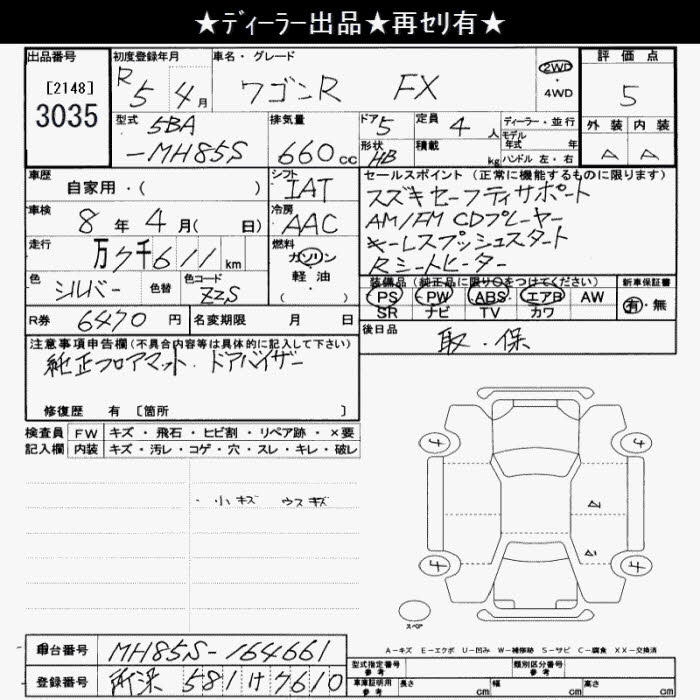 ★ディーラー出品★再セリ有★
出品番号
[2148]
3035
初度登録年月
R 5 4月
車名・グレード
ワゴンR FX
2WD
・
4WD
評価点
5
外装 内装
A A
型式
5BA
-MH85S
排気量
660cc
ドア 5
形状 HB
定員 4人
積載 kg
ディーラー・並行
モデル年式 年
ハンドル 左・右
車歴
自家用・( )
シフト
IAT
セールスポイント (正常に機能するものに限ります)
スズキセーフティサポート
AM/FM CDプレーヤー
キーレスプッシュスタート
Rシートヒーター
車検
8年4月( 日)
冷房
AAC
走行
万 7千611km
燃料
ガソリン
軽・油
( )
色
シルバー
色替
色コード
ZZS
装備品 (純正品に限り○をつけてください)
PS PW ABS エアB AW
SR ナビ TV カワ
新車保証書
有・無
R券 6470円
名変期限 月 日
後日品
取・保
注意事項申告欄(不具合内容等は具体的に記入して下さい)
純正フロアマット・ドアバイザー
修復歴 有 [箇所 ]
検査員
記入欄
FW キズ・飛石・ヒビ割・リペア跡・×要
内装 キズ・汚レ・コゲ・穴・スレ・キレ・破レ
・小キズ ウスキズ
4
4
4
4
スペア
A-キズ E-エクボ U-凹み W-補修跡 S-サビ C-腐食 XX-交換済
車台番号 MH85S-164661
登録番号 所沢 581 け 7610
型式指定番号
参考
類別区分番号
参考
車庫証明用
参考
長さ cm
幅 cm
高さ cm